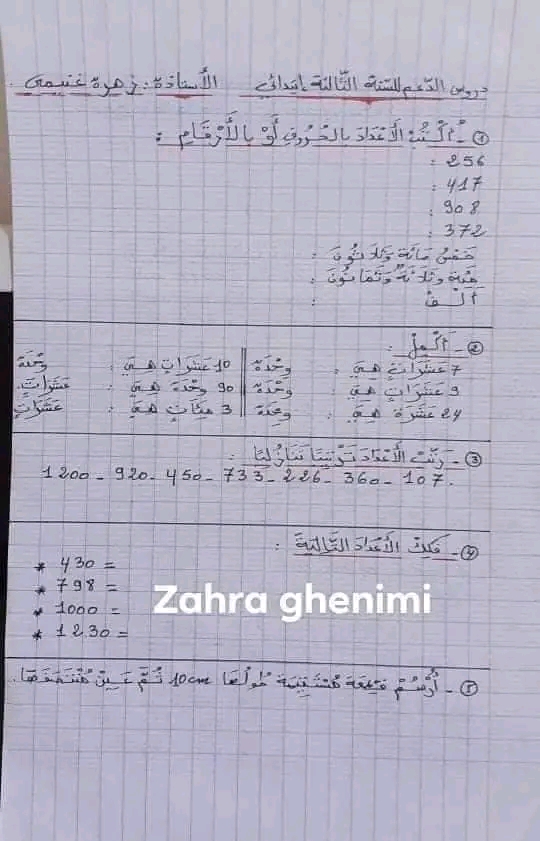 دروس الدعم للسنة الثالثة ابتدائي الأستاذة : زهرة غنيمي
① - أكتب الأعداد بالحروف أو بالأرقام :
256 :
417 :
908 :
372 :
خمس مائة وثلاثون :
مئة وثلاثة وثمانون :
ألف :
② - أكمل :
7 عشرات هي : وحدة 10 عشرات هي : وحدة
9 عشرات هي : وحدة 90 وحدة هي : عشرات
24 عشرة هي : وحدة 3 مئات هي : عشرات
③ - رتب الأعداد ترتيبا تنازليا :
1200 - 920 - 450 - 733 - 226 - 360 - 107.
④ - فكك الأعداد التالية :
* 430 =
* 798 =
* 1000 =
* 1230 =
Zahra ghenimi
⑤ - أرسم قطعة مستقيمة طولها 10cm ثم عين منتصفها.